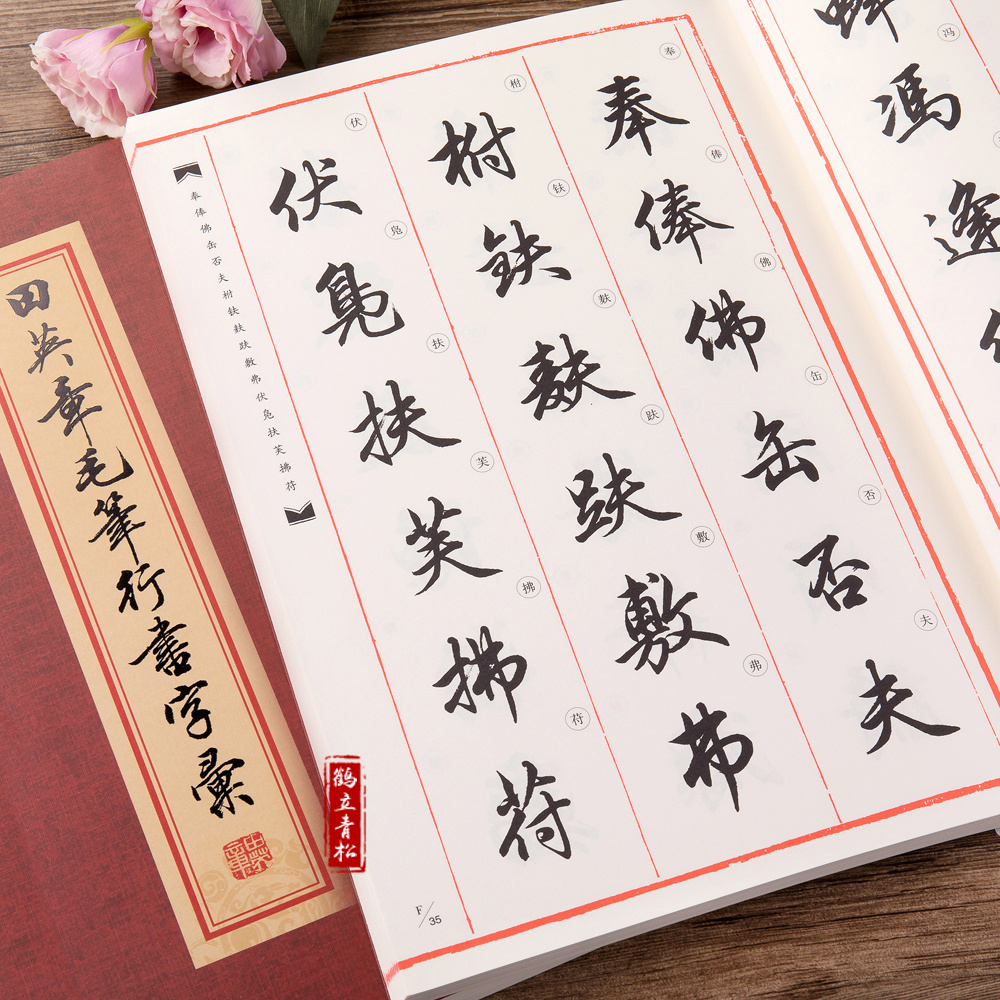 田英章毛筆行書字彙
奉俸佛缶否夫柎𫓧麸趺敷弗伏凫扶芙拂苻
奉
奉
俸
俸
佛
佛
缶
缶
否
否
夫
夫
柎
柎
𫓧
鈇
麸
麸
趺
趺
敷
敷
弗
弗
伏
伏
凫
鳧
扶
扶
芙
芙
拂
拂
苻
苻
冯
馮
逢
F/35
鹤立青松